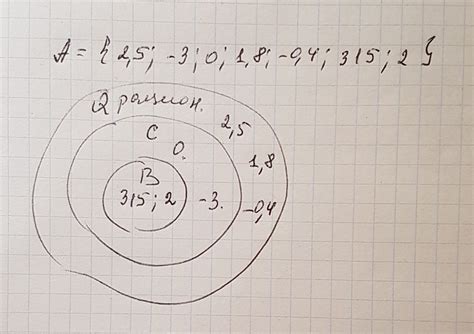 A = { 2,5; -3; 0; 1,8; -0,4; 315; 2 }
Q рацион.
C
2,5
0.
1,8
B
315; 2
-3.
-0,4